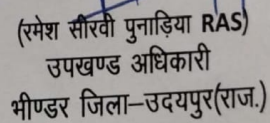 (रमेश सीरवी पुनाड़िया RAS)
उपखण्ड अधिकारी
भीण्डर जिला–उदयपुर(राज.)